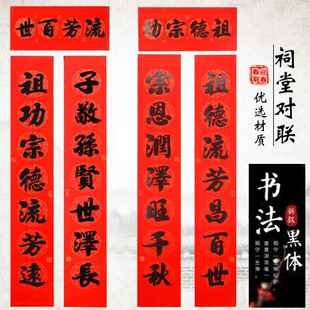 流芳百世
祖功宗德流芳遠
子敬孫賢世澤長
祖德宗功
祖德流芳昌百世
宗恩潤澤旺千秋
祠堂对联
优选材质
书法
新款
黑体